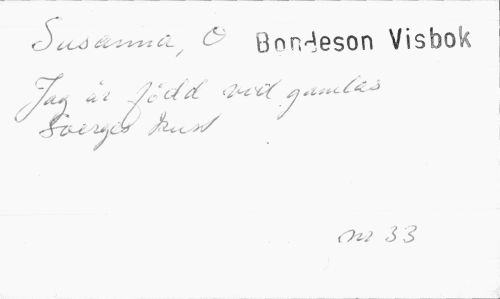 Susanna, O Bondeson Visbok
Jag är född vid gamlas
Sverges kust
nr 33